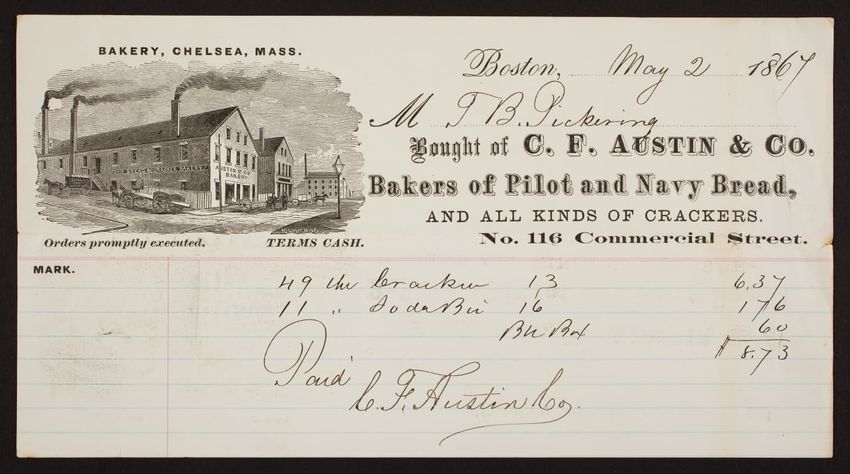 BAKERY, CHELSEA, MASS.
Boston, May 2 1867
M T B. Pickering
Bought of C. F. AUSTIN & CO.
Bakers of Pilot and Navy Bread,
AND ALL KINDS OF CRACKERS.
No. 116 Commercial Street.
AUSTIN & CO
BAKERY
Orders promptly executed. TERMS CASH.
MARK.
49 Cracker 13 6.37
11 " Soda Bis 16 1 76
Box 60
$ 8.73
Paid
C. F. Austin Co.